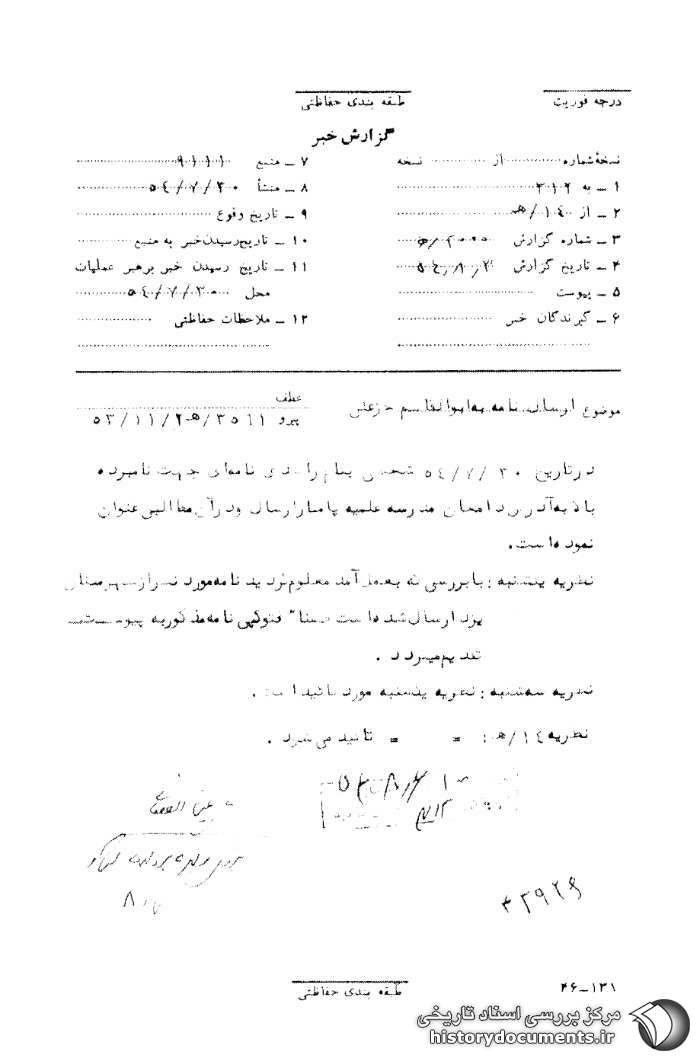 درجه فوریت
طبقه بندی حفاظتی
گزارش خبر
نسخهٔ شماره از نسخه
۱ ـ به ۳۱۲
۲ ـ از ۱۴/هـ
۳ ـ شماره گزارش
۴ ـ تاریخ گزارش
۵ ـ پیوست
۶ ـ گیرندگان خبر
۷ ـ منبع
۸ ـ منشأ ۵۴/۷/۳۰
۹ ـ تاریخ وقوع
۱۰ ـ تاریخ رسیدن خبر به منبع
۱۱ ـ تاریخ رسیدن خبر برهبر عملیات
محل ۵۴/۷/۳۰
۱۲ ـ ملاحظات حفاظتی
موضوع ارسال نامه به ابوالقاسم خزعلی
عطف
پیرو ۳۵۶۱/هـ۲/۱۱/۵۳
در تاریخ ۵۴/۷/۳۰ شخصی بنام راشدی نامه‌ای جهت نامبرده
بالا به آدرس دامغان مدرسه علمیه پامنار ارسال و در آن مطالبی عنوان
نموده است.
نظریه پنشنبه : با بررسی که بعمل آمد معلوم گردید نامه مورد نظر از شهرستان
یزد ارسال شده است ضمنا" فتوکپی نامه مذکور به پیوست
تقدیم میگردد .
نظریه سه‌شنبه : نظریه پنشنبه مورد تائید است .
نظریه ۱۴/هـ : = = تائید می‌شود .
۴۶ـ۱۳۱
طبقه بندی حفاظتی
مرکز بررسی اسناد تاریخی
historydocuments.ir